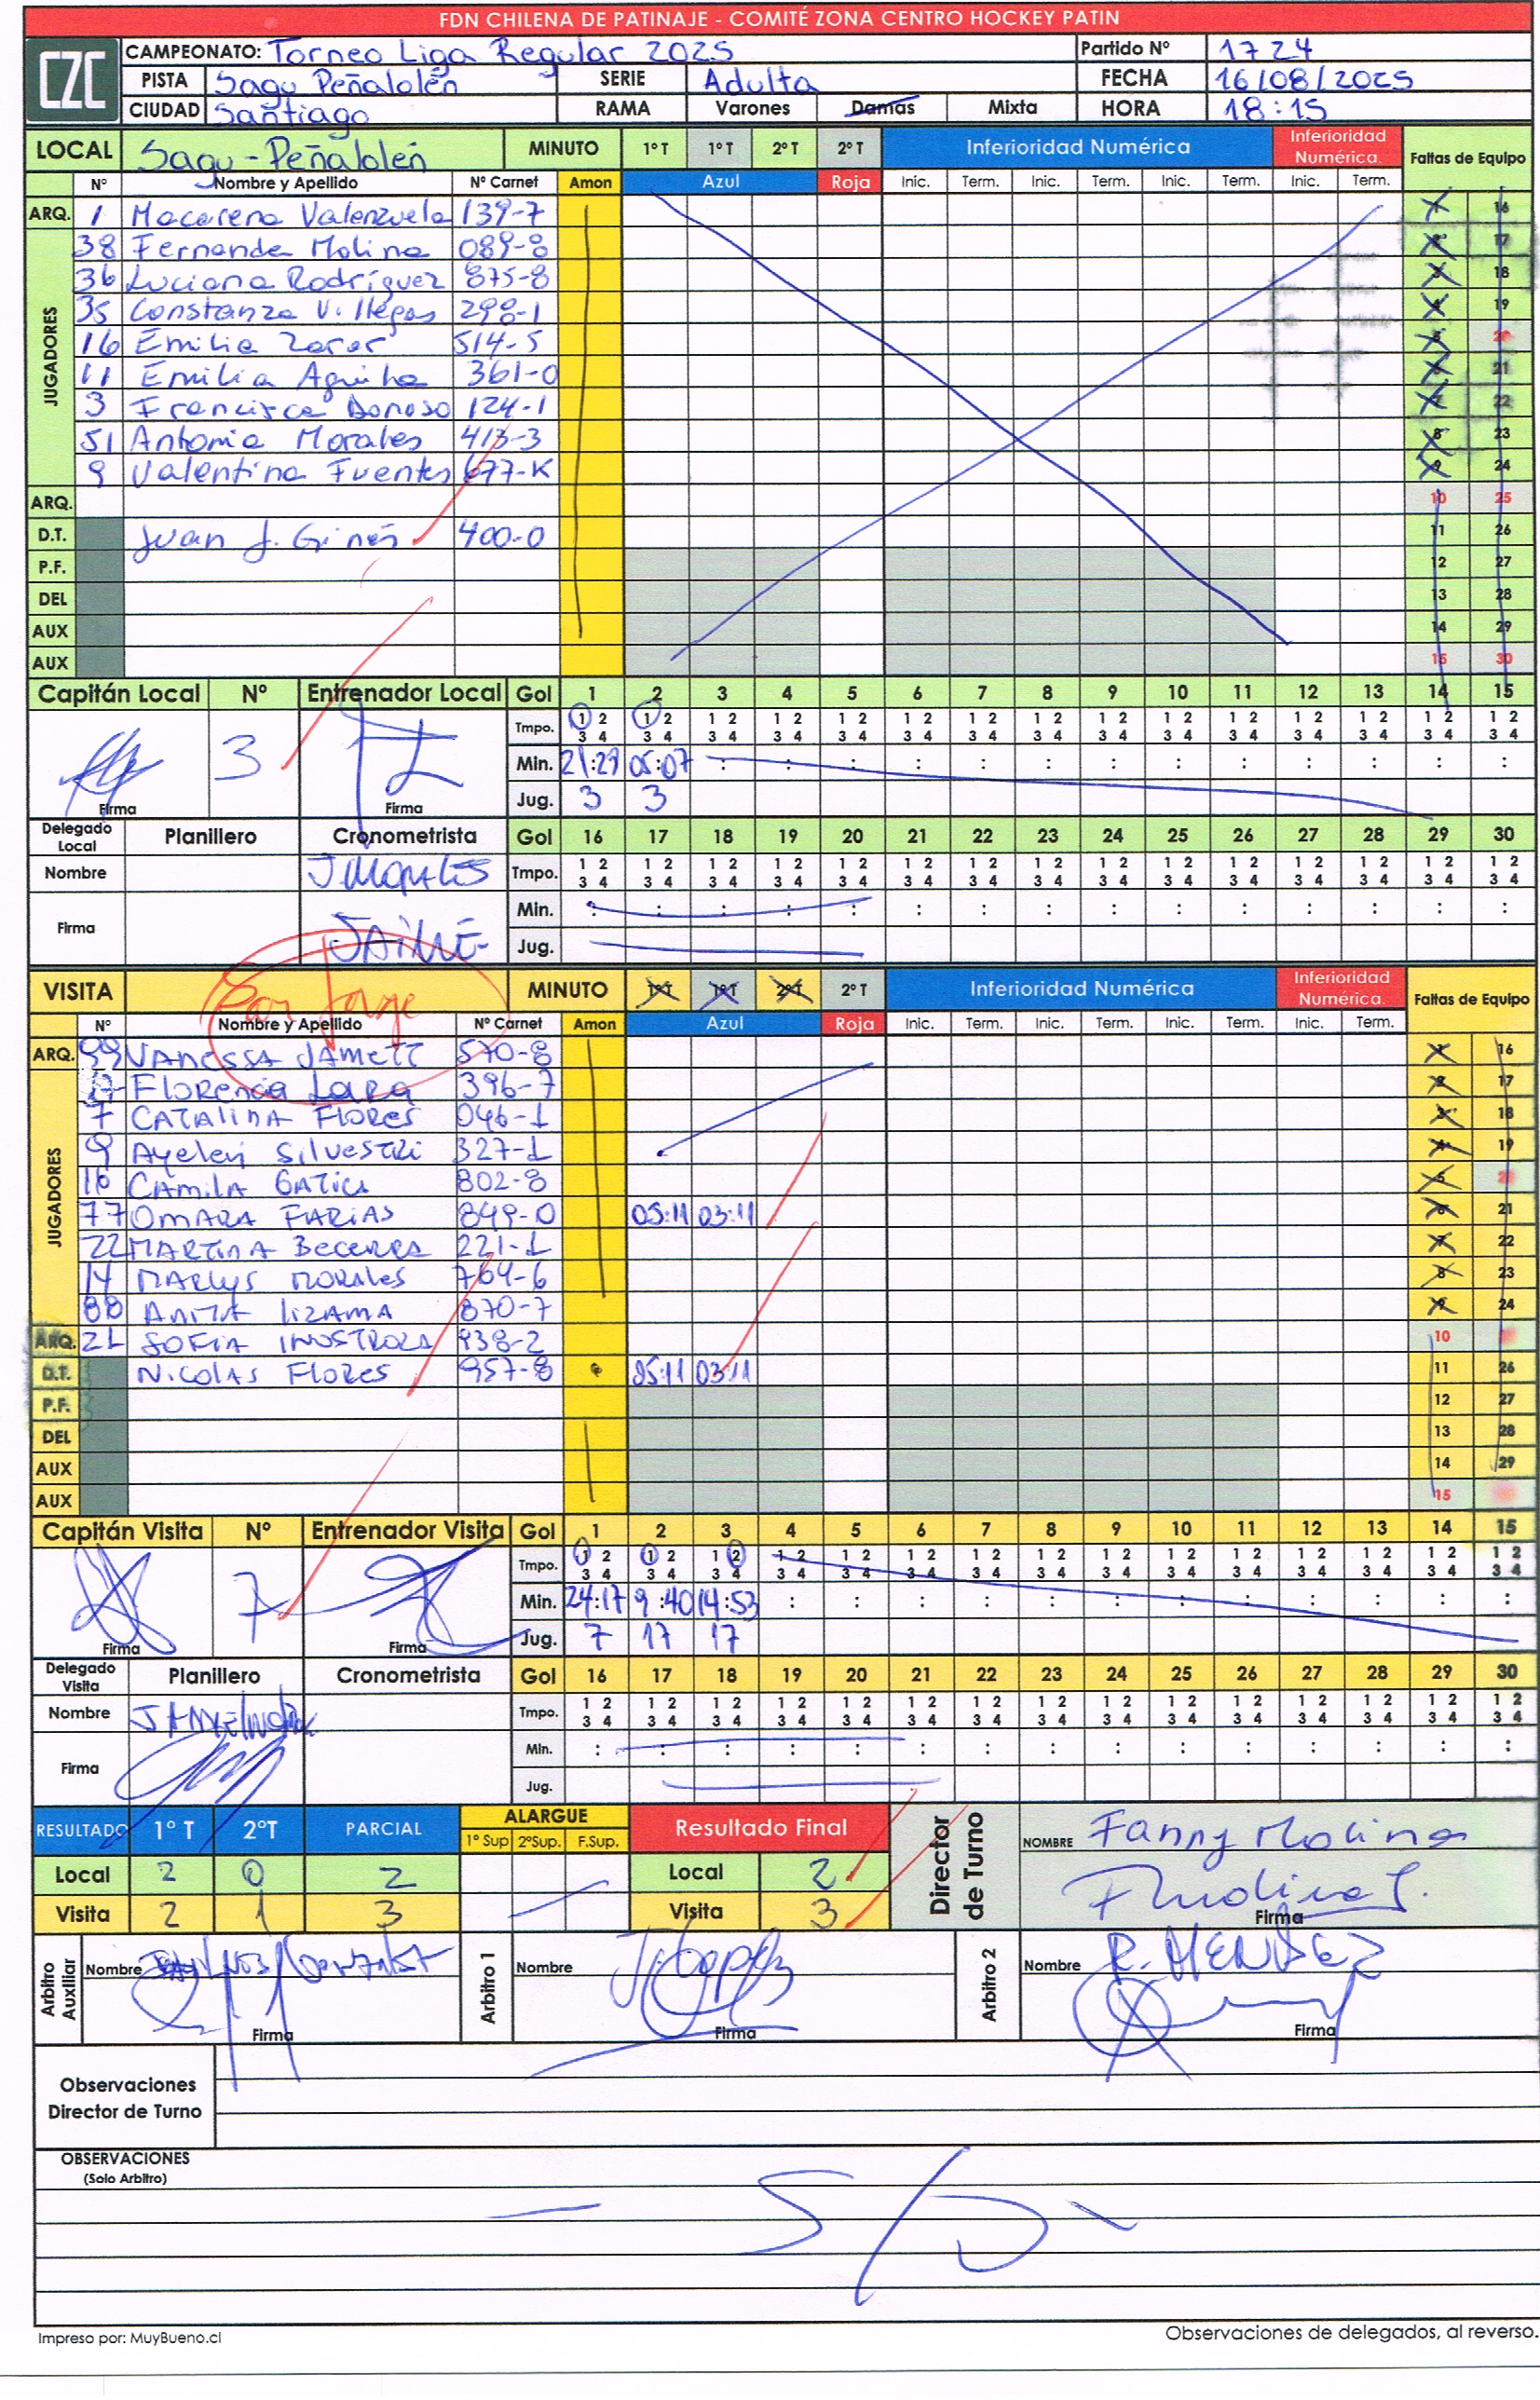 FDN CHILENA DE PATINAJE - COMITÉ ZONA CENTRO HOCKEY PATIN
CZC
CAMPEONATO: Torneo Liga Regular 2025 Partido Nº 1724
PISTA Sagu Peñalolén SERIE Adulta FECHA 16/08/2025
CIUDAD Santiago RAMA Varones Damas Mixta HORA 18:15
LOCAL Sagu-Peñalolén MINUTO 1º T 1º T 2º T 2º T Inferioridad Numérica Inferioridad Numérica. Faltas de Equipo
Nº Nombre y Apellido Nº Carnet Amon Azul Roja Inic. Term. Inic. Term. Inic. Term. Inic. Term.
ARQ. 1 Macarena Valenzuela 139-7 1 16
JUGADORES
38 Fernanda Molina 089-8 2 17
36 Luciana Rodríguez 875-8 3 18
35 Constanza Villegas 298-1 4 19
16 Emilia Zarar 514-5 5 20
11 Emilia Aguilra 361-0 6 21
3 Francisca Donoso 124-1 7 22
51 Antonia Morales 413-3 8 23
9 Valentina Fuentes 677-K 9 24
ARQ. 10 25
D.T. Juan J. Ginés 400-0 11 26
P.F. 12 27
DEL 13 28
AUX 14 29
AUX 15 30
Capitán Local Nº Entrenador Local Gol 1 2 3 4 5 6 7 8 9 10 11 12 13 14 15
Tmpo. 1 2 1 2 1 2 1 2 1 2 1 2 1 2 1 2 1 2 1 2 1 2 1 2 1 2 1 2 1 2
3 4 3 4 3 4 3 4 3 4 3 4 3 4 3 4 3 4 3 4 3 4 3 4 3 4 3 4 3 4
3 Min. 21:29 05:07 : : : : : : : : : : : : :
Firma Firma Jug. 3 3
Delegado Local Planillero Cronometrista Gol 16 17 18 19 20 21 22 23 24 25 26 27 28 29 30
Nombre J Morales Tmpo. 1 2 1 2 1 2 1 2 1 2 1 2 1 2 1 2 1 2 1 2 1 2 1 2 1 2 1 2 1 2
3 4 3 4 3 4 3 4 3 4 3 4 3 4 3 4 3 4 3 4 3 4 3 4 3 4 3 4 3 4
Firma JAIME Min. : : : : : : : : : : : : : : :
Jug.
VISITA San Jorge MINUTO 1º T 1º T 2º T 2º T Inferioridad Numérica Inferioridad Numérica. Faltas de Equipo
Nº Nombre y Apellido Nº Carnet Amon Azul Roja Inic. Term. Inic. Term. Inic. Term. Inic. Term.
ARQ. 99 VANESSA JAMETT 570-8 1 16
JUGADORES
17 FLORENCIA LARA 396-7 2 17
7 CATALINA FLORES 046-1 3 18
9 Ayelen SILVESTRI 327-1 4 19
16 CAMILA GATICA 802-8 5 20
77 OMARA FARIAS 849-0 05:11 03:11 6 21
22 MARTINA BECERRA 221-1 7 22
14 MARLYS MORALES 764-6 8 23
88 ANITA LIZAMA 870-7 9 24
ARQ. 21 SOFIA INOSTROZA 938-2 10
D.T. NICOLAS FLORES 957-8 05:11 03:11 11 26
P.F. 12 27
DEL 13 28
AUX 14 29
AUX 15
Capitán Visita Nº Entrenador Visita Gol 1 2 3 4 5 6 7 8 9 10 11 12 13 14 15
Tmpo. 1 2 1 2 1 2 1 2 1 2 1 2 1 2 1 2 1 2 1 2 1 2 1 2 1 2 1 2 1 2
3 4 3 4 3 4 3 4 3 4 3 4 3 4 3 4 3 4 3 4 3 4 3 4 3 4 3 4 3 4
7 Min. 24:17 9:40 14:53 : : : : : : : : : : : :
Firma Firma Jug. 7 17 17
Delegado Visita Planillero Cronometrista Gol 16 17 18 19 20 21 22 23 24 25 26 27 28 29 30
Nombre Tmpo. 1 2 1 2 1 2 1 2 1 2 1 2 1 2 1 2 1 2 1 2 1 2 1 2 1 2 1 2 1 2
3 4 3 4 3 4 3 4 3 4 3 4 3 4 3 4 3 4 3 4 3 4 3 4 3 4 3 4 3 4
Firma Min. : : : : : : : : : : : : : : :
Jug.
RESULTADO 1º T 2ºT PARCIAL ALARGUE 1º Sup 2ºSup. F.Sup. Resultado Final Director de Turno NOMBRE Fanny Molina
Local 2 0 2 Local 2 FMolina
Visita 2 1 3 Visita 3 Firma
Arbitro Auxiliar Nombre Arbitro 1 Nombre Arbitro 2 Nombre R. MENDEZ
Firma Firma Firma
Observaciones
Director de Turno
OBSERVACIONES
(Solo Arbitro)
— S/O —
Impreso por: MuyBueno.cl Observaciones de delegados, al reverso.